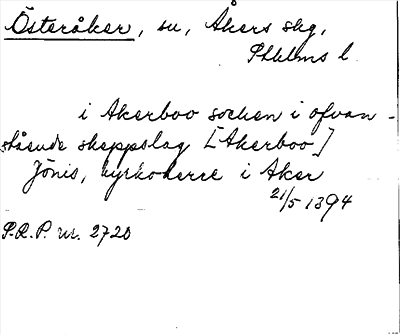 Österåker, sn, Åkers skg,
Sthlms l.
i Akerboo sochen i ofvan-
stående skeppslag [Akerboo]
Jönis, kyrkoherre i Aker
21/5 1394
S.R.P. nr. 2720